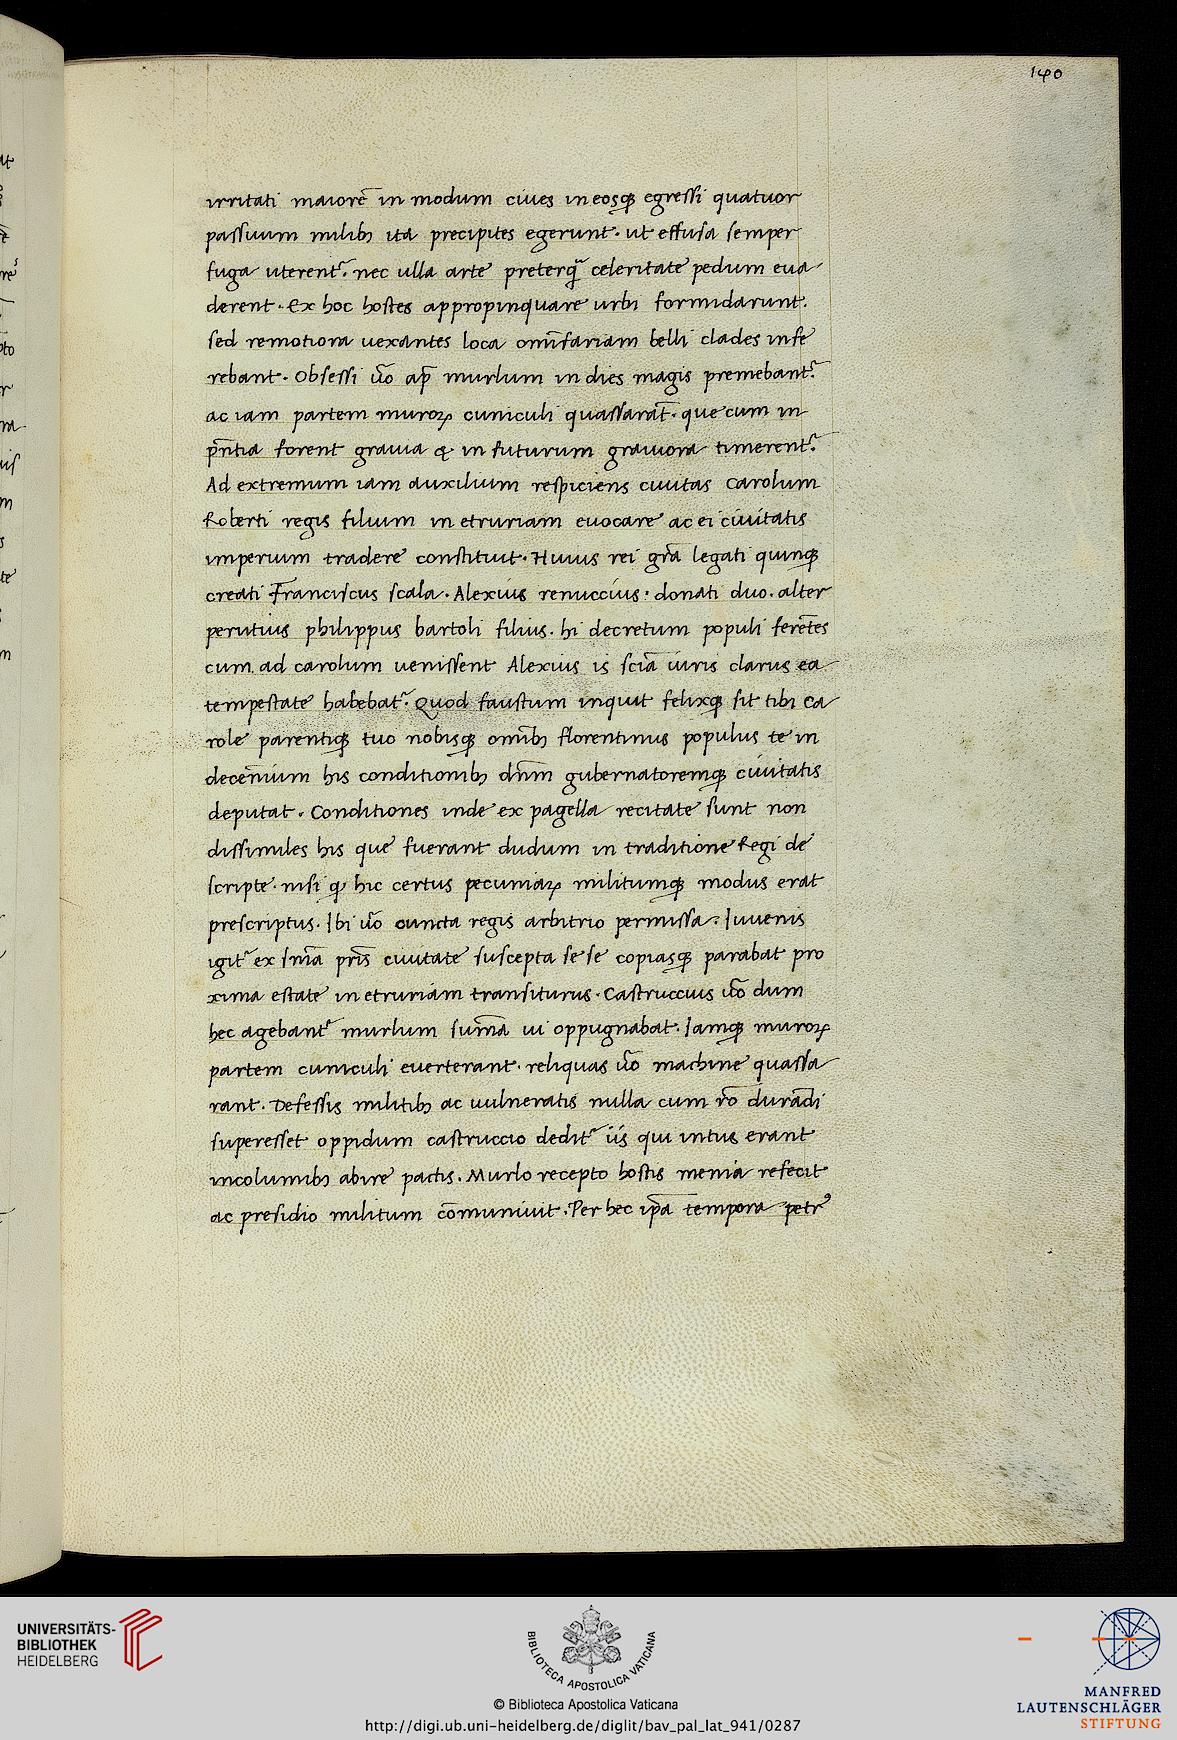 140
irritati maiorē in modum ciues in eosq; egressi quatuor
passuum milib; ita precipites egerunt. ut effusa semper
fuga uterent᷑. nec ulla arte preterq̃ celeritate pedum eua
derent. Ex hoc hostes appropinquare urbi formidarunt.
sed remotiora uexantes loca om̄ifariam belli clades infe
rebant. Obsessi u̅o ap̅ murlum in dies magis premebant᷑.
ac iam partem muroꝝ cuniculi quassarāt. que cum in
pn̄tia forent grauia & in futurum grauiora timerent᷑.
Ad extremum iam auxilium respiciens ciuitas Carolum
Roberti regis filium in etruriam euocare ac ei ciuitatis
imperium tradere constituit. Huius rei gr̄a legati quinq;
creati Franciscus scala. Alexius renuccius. donati duo. alter
perutius philippus bartoli filius. hi decretum populi ferētes
cum ad carolum uenissent Alexius is sciā iuris clarus ea
tempestate habebat᷑. Quod faustum inquit felixq; sit tibi Ca
role parentiq; tuo nobisq; omīb; florentinus populus te in
decēnium his conditionib; dn̄m gubernatoremq; ciuitatis
deputat. Conditiones inde ex pagella recitate sunt non
dissimiles his que fuerant dudum in traditione Regi de
scripte. nisi ꝙ hic certus pecuniaꝝ militumq; modus erat
prescriptus. Ibi u̅o cuncta regis arbitrio permissa. Iuuenis
igit᷑ ex sn̄ia pr̄is ciuitate suscepta se se copiasq; parabat pro
xima estate in etruriam transiturus. Castruccius u̅o dum
hec agebant᷑ murlum sum̄a ui oppugnabat. Iamq; muroꝝ
partem cuniculi euerterant. reliquas u̅o machine quassa
rant. Defessis militib; ac uulneratis nulla cum r̄o durādi
superesset oppidum castruccio dedit᷑ iis qui intus erant
incolumib; abire pactis. Murlo recepto hostis menia refecit
ac presidio militum cōmuniuit. Per hec ip̄a tempora petrꝰ
UNIVERSITÄTS-
BIBLIOTHEK
HEIDELBERG
BIBLIOTECA APOSTOLICA VATICANA
© Biblioteca Apostolica Vaticana
http://digi.ub.uni-heidelberg.de/diglit/bav_pal_lat_941/0287
MANFRED
LAUTENSCHLÄGER
STIFTUNG